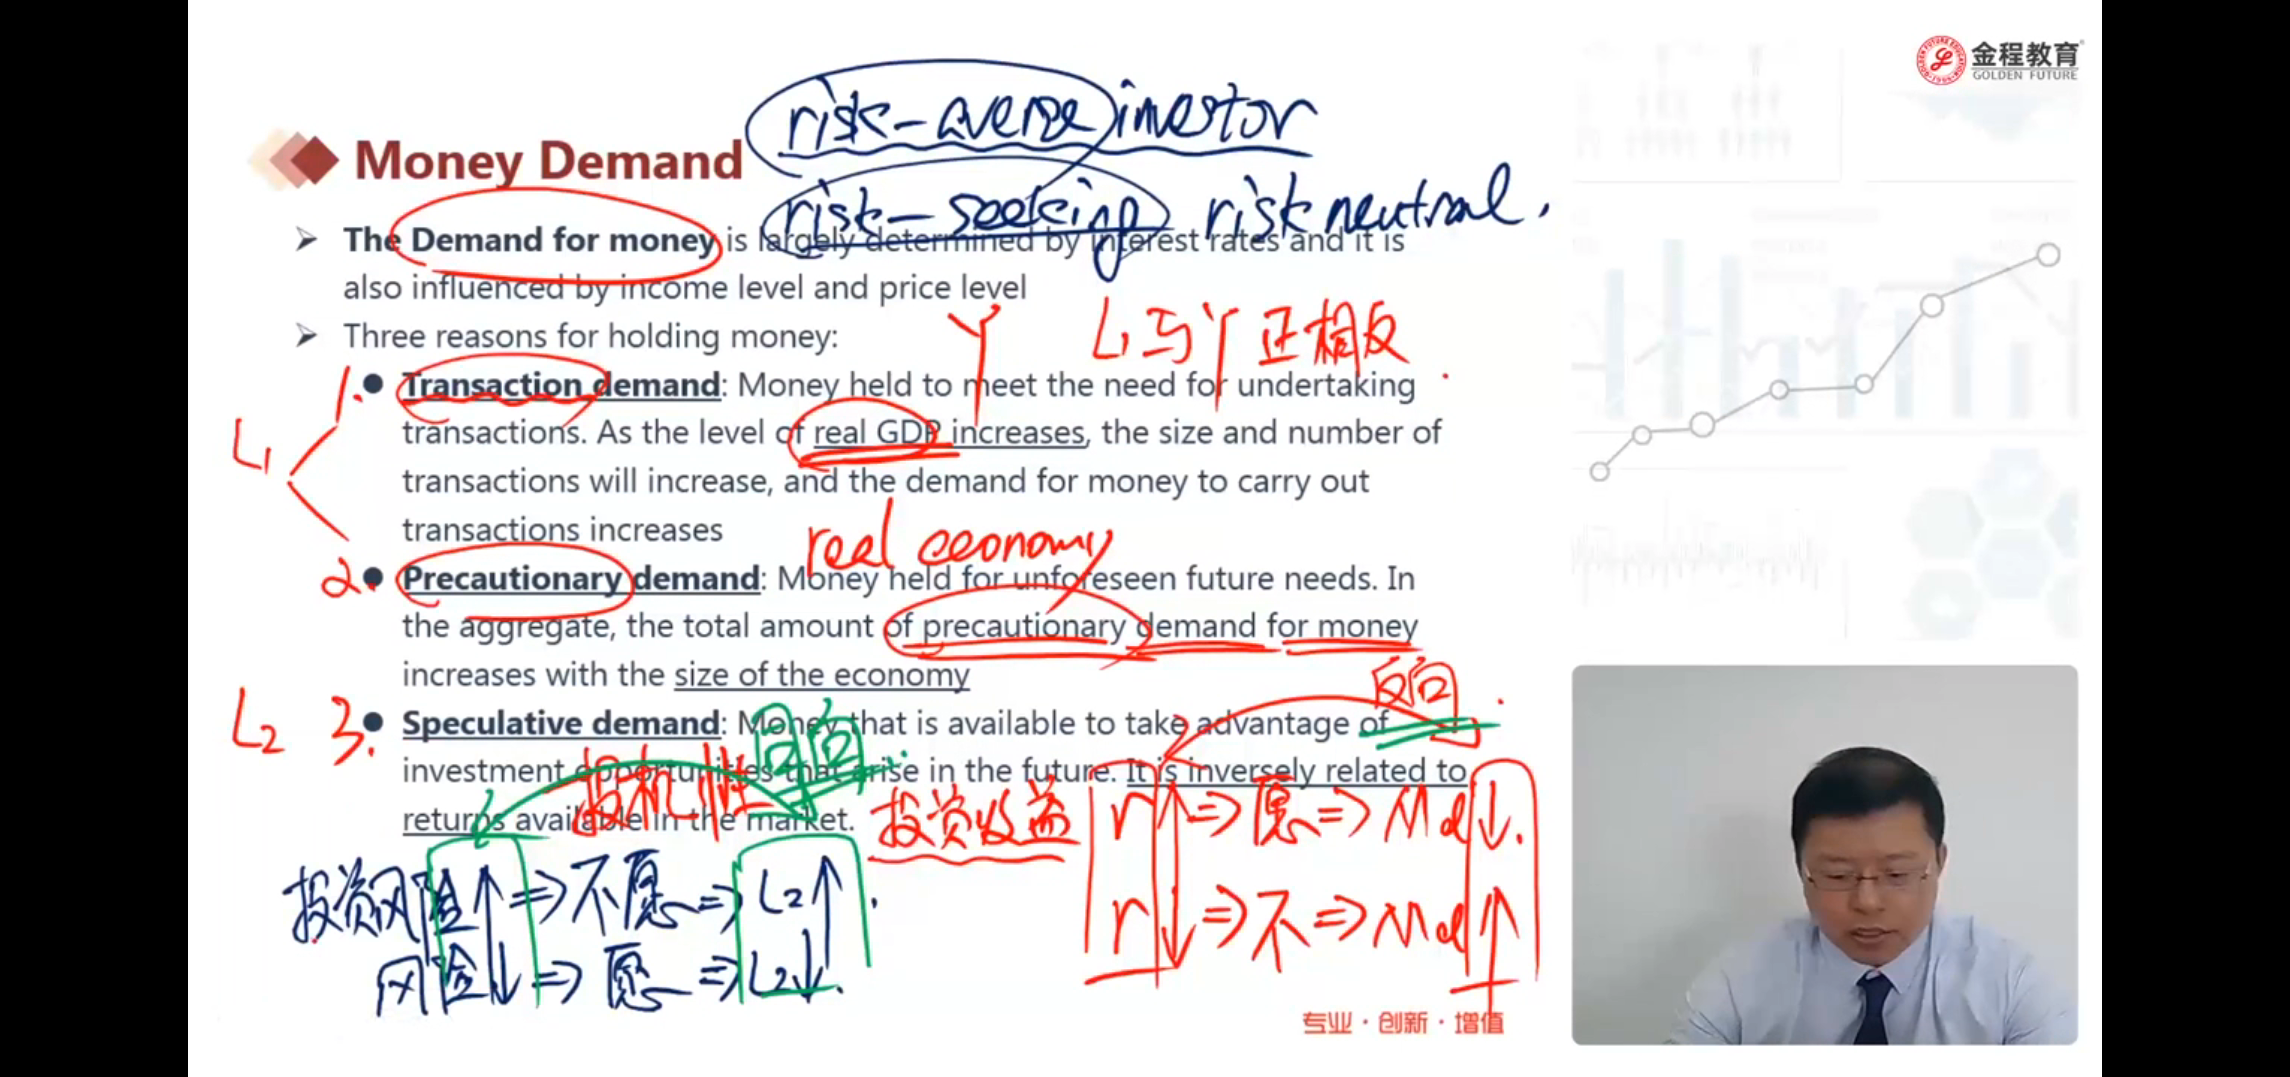 金程教育
GOLDEN FUTURE
risk-averse investor
Money Demand
risk-seeking risk neutral.
The Demand for money is largely determined by interest rates and it is
also influenced by income level and price level
Y L1与Y正相反
Three reasons for holding money:
1. Transaction demand: Money held to meet the need for undertaking
transactions. As the level of real GDP increases, the size and number of
L1
transactions will increase, and the demand for money to carry out
transactions increases
real economy
2. Precautionary demand: Money held for unforeseen future needs. In
the aggregate, the total amount of precautionary demand for money
increases with the size of the economy
反向
L2 3. Speculative demand: Money that is available to take advantage of
同向
investment opportunities that arise in the future. It is inversely related to
投机性
returns available in the market.
投资收益 r↑⇒愿⇒Md↓.
投资风险↑⇒不愿⇒L2↑.
r↓⇒不⇒Md↑
风险↓⇒愿⇒L2↓.
专业·创新·增值